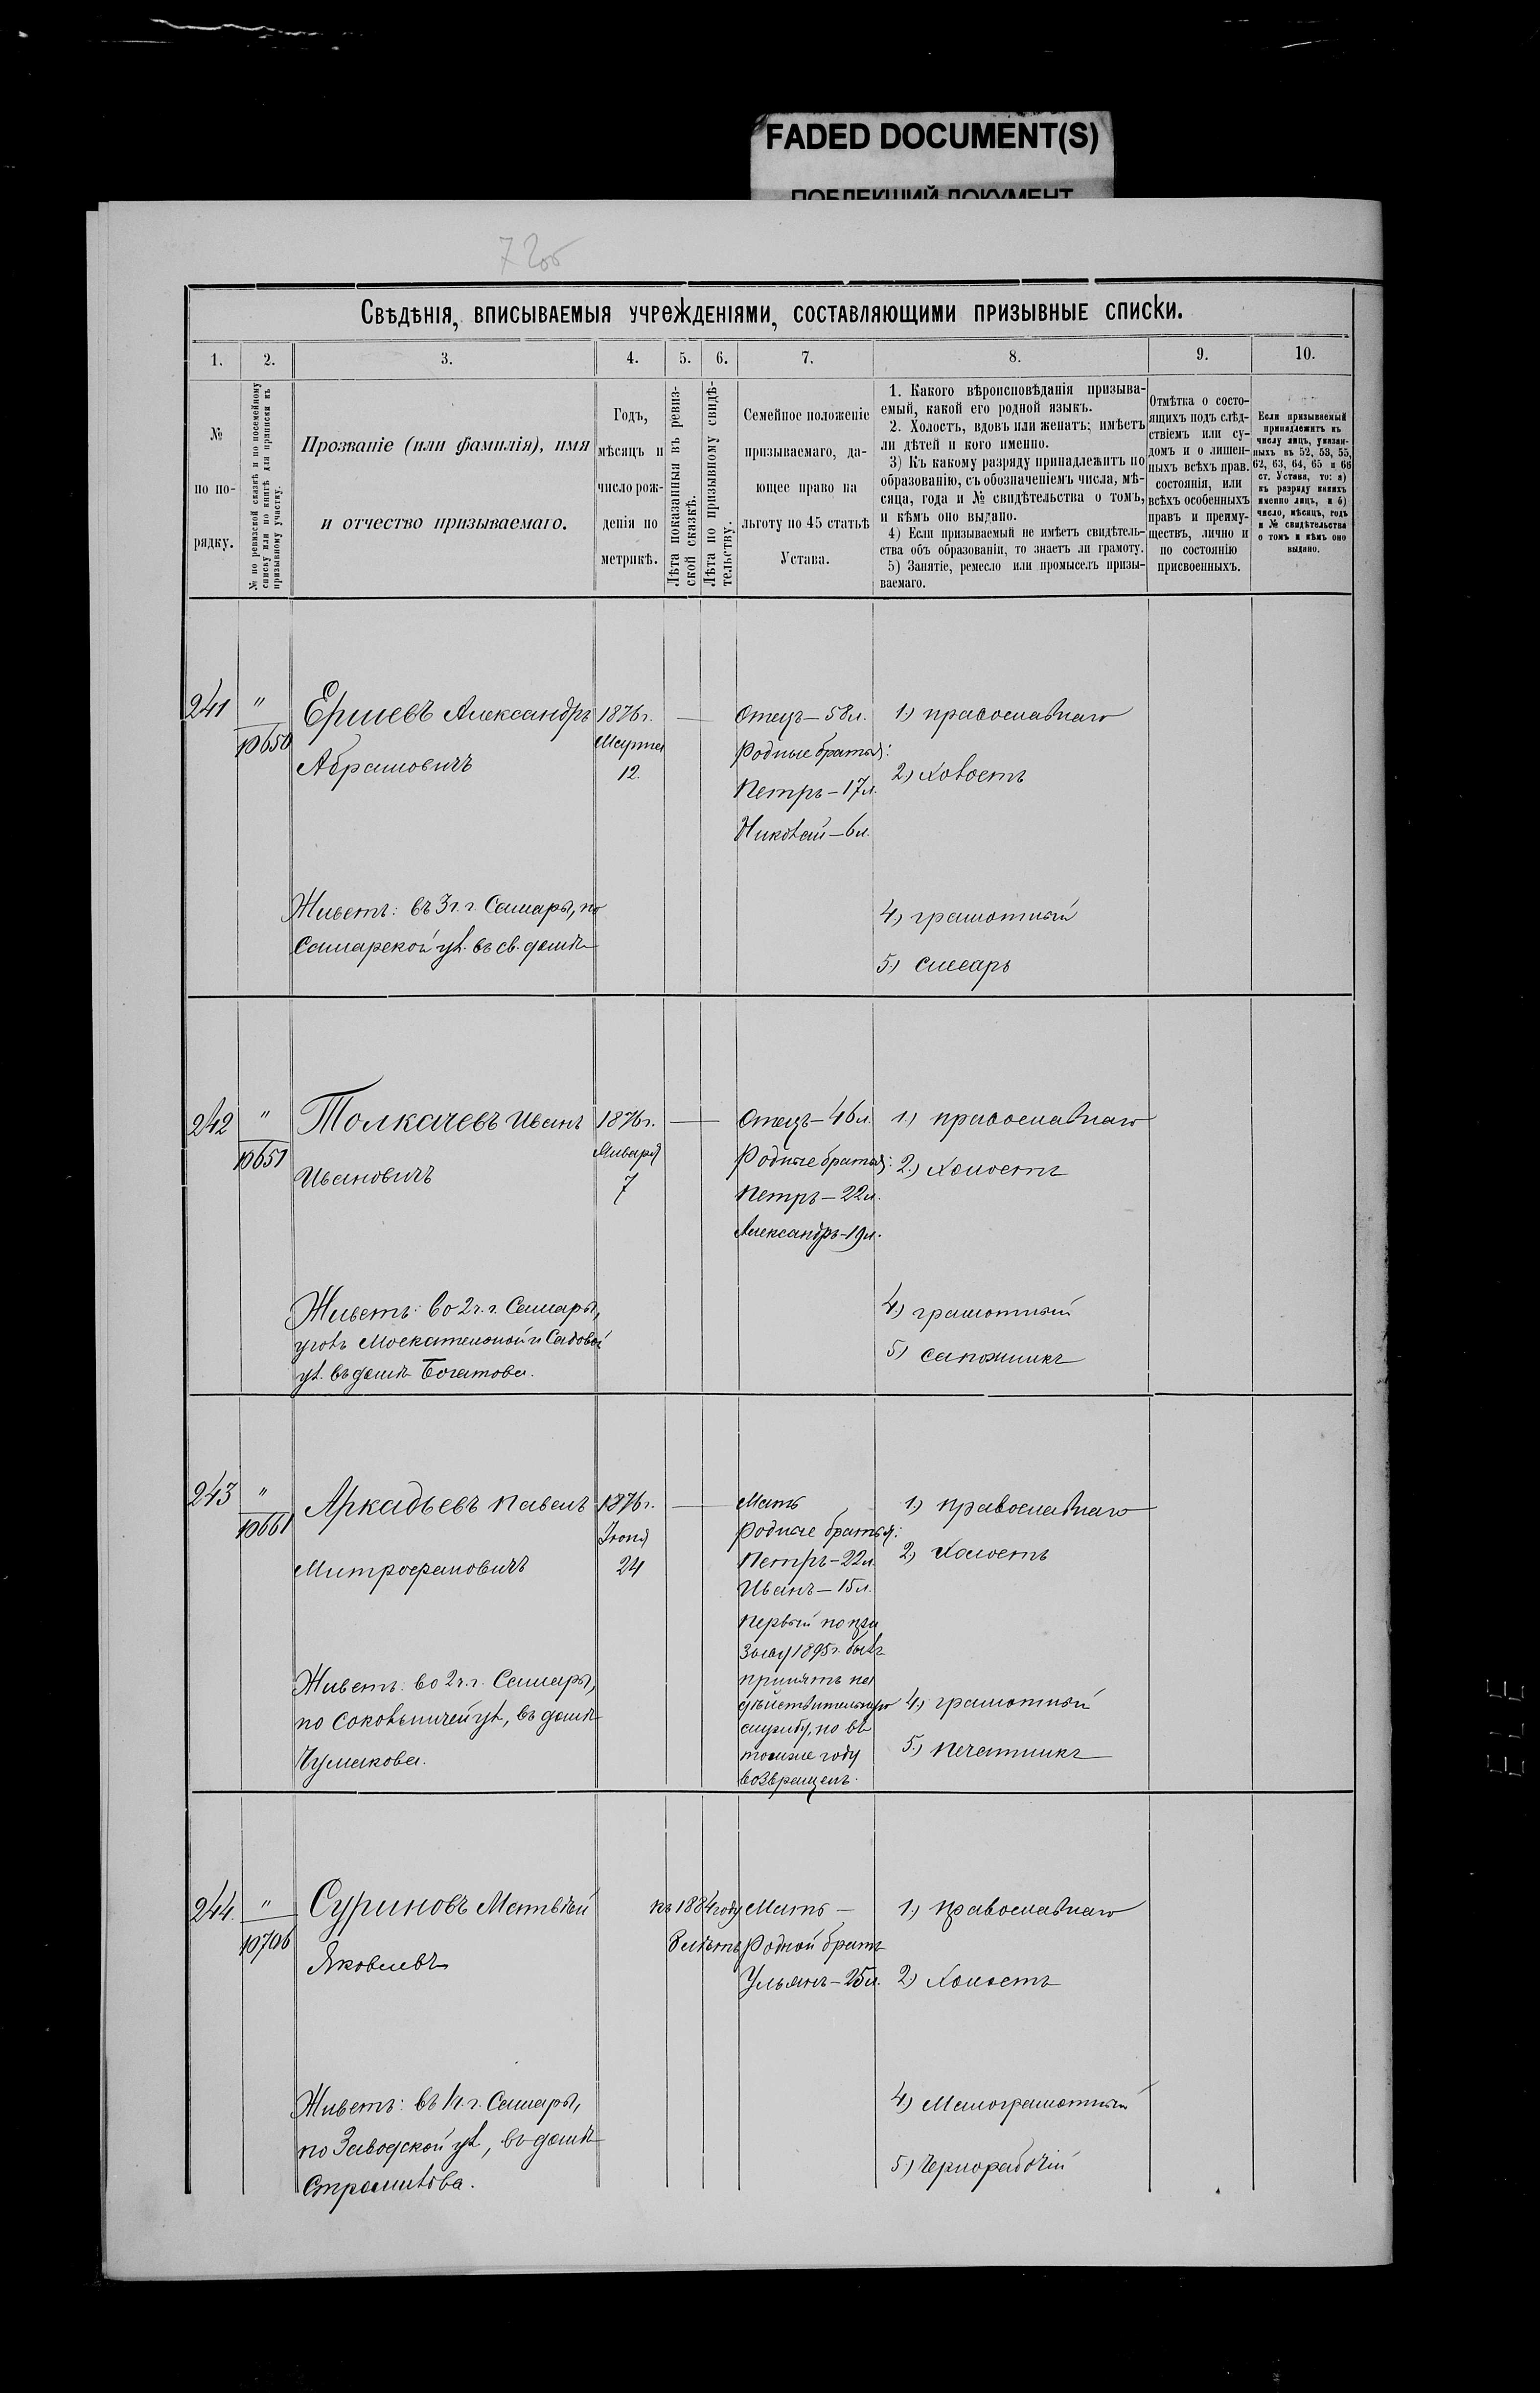 FADED DOCUMENT(S)
ПОБЛЕКШИЙ ДОКУМЕНТ
72об
Свѣдѣнія, вписываемыя учрежденіями, составляющими призывные списки.
1. 2. 3. 4. 5. 6. 7. 8. 9. 10.
№
по по-
рядку.
№ по ревизской сказкѣ и по посемейному
списку или по книгѣ для приписки къ
призывному участку.
Прозваніе (или фамилія), имя
и отчество призываемаго.
Годъ,
мѣсяцъ и
число рож-
денія по
метрикѣ.
Лѣта показанныя въ ревиз-
ской сказкѣ.
Лѣта по призывному свидѣ-
тельству.
Семейное положеніе
призываемаго, да-
ющее право на
льготу по 45 статьѣ
Устава.
1. Какого вѣроисповѣданія призыва-
емый, какой его родной языкъ.
2. Холостъ, вдовъ или женатъ; имѣетъ
ли дѣтей и кого именно.
3) Къ какому разряду принадлежитъ по
образованію, съ обозначеніемъ числа, мѣ-
сяца, года и № свидѣтельства о томъ,
и кѣмъ оно выдано.
4) Если призываемый не имѣетъ свидѣтель-
ства объ образованіи, то знаетъ ли грамоту.
5) Занятіе, ремесло или промыселъ призы-
ваемаго.
Отмѣтка о состо-
ящихъ подъ слѣд-
ствіемъ или су-
домъ и о лишен-
ныхъ всѣхъ прав.
состоянія, или
всѣхъ особенныхъ
правъ и преиму-
ществъ, лично и
по состоянію
присвоенныхъ.
Если призываемый
принадлежитъ къ
числу лицъ, указан-
ныхъ въ 52, 53, 55,
62, 63, 64, 65 и 66
ст. Устава, то: а)
къ разряду какихъ
именно лицъ, и б)
число, мѣсяцъ, годъ
и № свидѣтельства
о томъ и кѣмъ оно
выдано.
241
"
10650
Ершевъ Александръ
Абрамовичъ
Живетъ: въ 3 ч. г. Самары, по
Самарской ул. въ св. домѣ
1876 г.
Марта
12.
—
Отецъ — 58 л.
Родные братья:
Петръ — 17 л.
Николай — 6 л.
1) православнаго
2) Холостъ
4) грамотный
5) слесарь
242
"
10651
Толкачевъ Иванъ
Ивановичъ
Живетъ: во 2 ч. г. Самары,
уголъ Москательной и Садовой
ул. въ домѣ Богатова.
1876 г.
Января
7
—
Отецъ — 46 л.
Родные братья:
Петръ — 22 л.
Александръ — 19 л.
1) православнаго
2) Холостъ
4) грамотный
5) сапожникъ
243
"
10661
Аркадьевъ Павелъ
Митрофановичъ
Живетъ: во 2 ч. г. Самары,
по Соколничей ул., въ домѣ
Чумакова.
1876 г.
Іюня
24
—
Мать
Родные братья:
Петръ — 22 л.
Иванъ — 15 л.
Первый по при
зыву 1895 г. былъ
принятъ на
дѣйствительную
службу, но въ
томъ же году
возвращенъ.
1) православнаго
2) Холостъ
4) грамотный
5) печатникъ
244.
"
10706
Суриновъ Матвѣй
Яковлевъ
Живетъ: въ 1 ч. г. Самары,
по Заводской ул., въ домѣ
Стромилова.
къ 1884 году
8 лѣтъ
Мать —
Родной братъ
Ульянъ — 25 л.
1) православнаго
2) Холостъ
4) Малограмотный
5) Чернорабочій